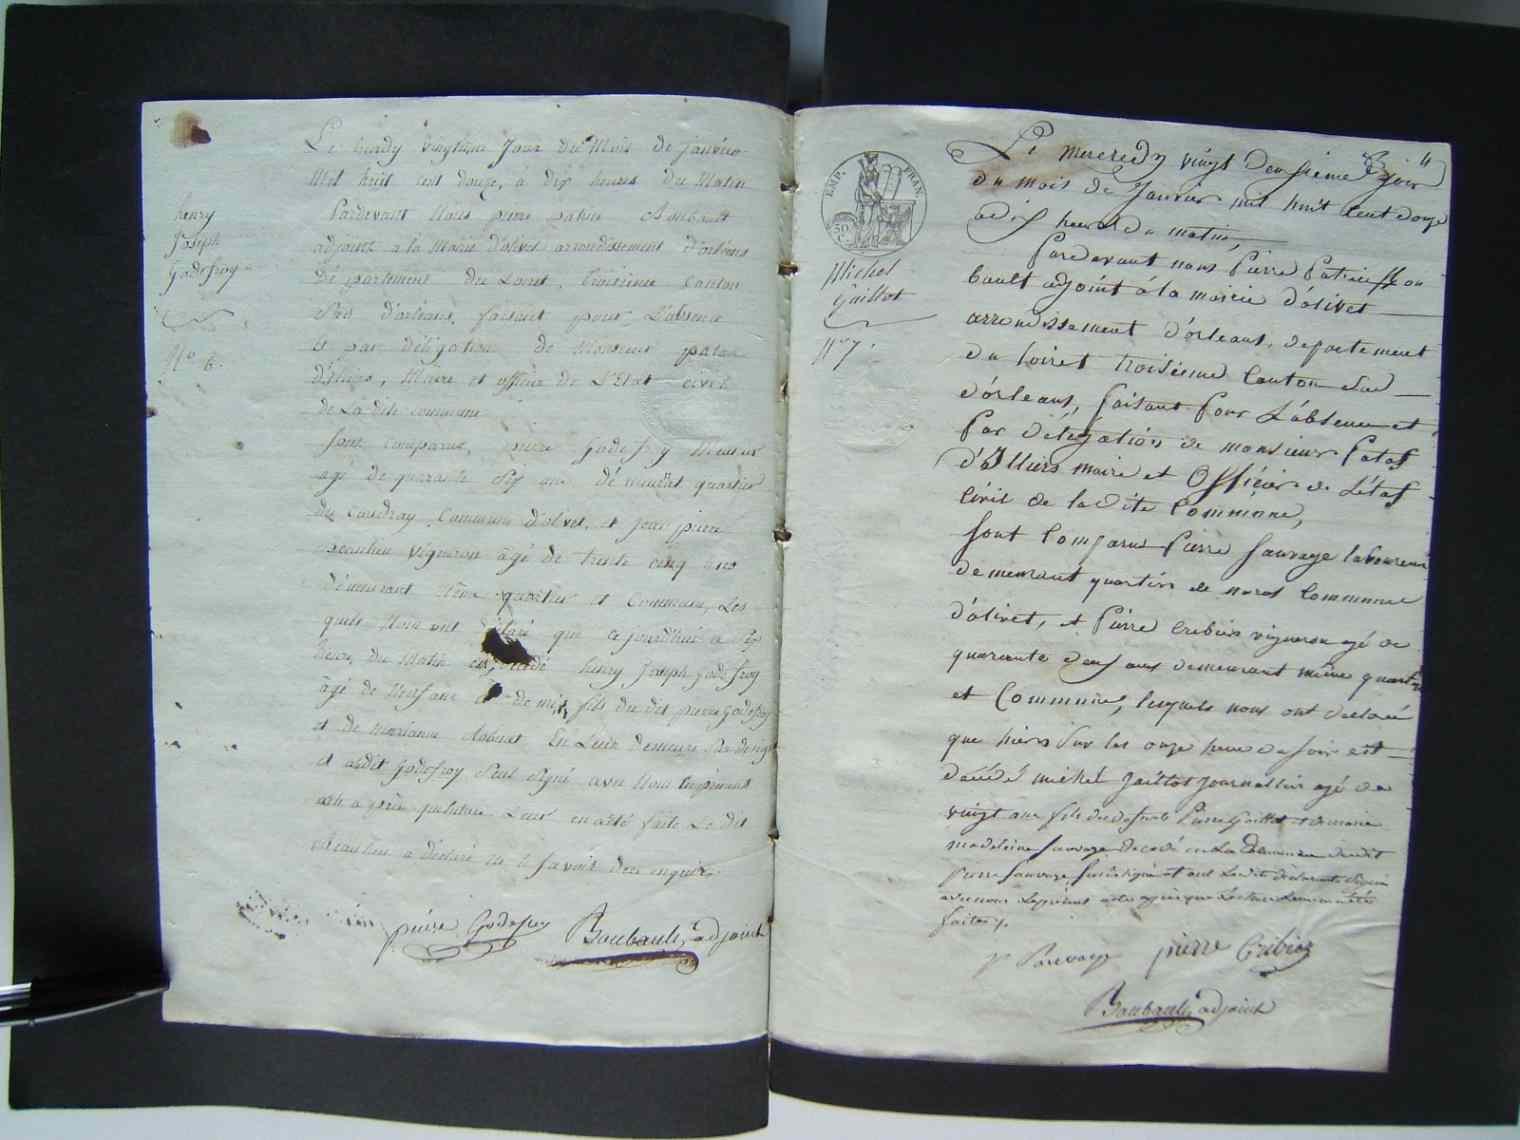 henry
Joseph
Godefroy
N.º 6.
Le lundy vingtieme Jour du Mois de janvier
Mil huit cent douze, à dix heures du Matin
Pardevant Nous pierre patrice Boubault
adjoint a la Mairie d'olivet arrondissement d'orléans
Département du Loiret, troisième Canton
Sud d'orléans, faisant pour L'absence
et par délégation de Monsieur patas
d'illiers, Maire et officier de L'Etat civil
de La dite commune
sont comparus, pierre Godefroy Meunier
agé de quarante six ans démeurant quartier
du Coudray, Commune d'olivet, et jean pierre
vigneron âgé de trente cinq ans
démeurant même quartier et Commune, Les
quels Nous ont déclaré que ce jourd'huy a six
heures du Matin est décédé henry Joseph Godefroy
âgé de Neuf ans et demis, fils du dit pierre Godefroy
et de marianne En Leur demeure
et Ledit Godefroy seul signé avec Nous Le présent
acte après que lecture Leur en a été faite Le dit
a déclaré ne le savoir de ce enquis
pierre Godefroy Boubault adjoint
EMP. FRAN.
Michel
Gaillot
N.º 7.
Le mercredy vingt deuxième jour
du mois de Janvier mil huit cent douze
a dix heures du matin,
Pardevant nous Pierre Patrice Bou
bault adjoint à la mairie d'olivet
arrondissement d'orleans, departement
du loiret troisième Canton sud
d'orleans, faisant pour L'absence et
par délégation de monsieur Patas
d'Illiers maire et Officier de L'état
Civil de la dite Commune,
sont Comparus Pierre Sauvage laboureur
demeurant quartier de Commune
d'olivet, et Pierre Cribier vigneron agé de
quarante deux ans demeurant même quartier
et Commune, lesquels nous ont declaré
que hiers sur les onze heure du soir est
décédé michel Gaillot journallier agé de
vingt ans fils du defunt Pierre Gaillot et de marie
madeleine Sauvage decedé en La demeure dudit
Pierre Sauvage et ont Lesdits declarants signé
avec nous Le présent acte après que Lecture Leur en a été
faite.
P Sauvage pierre Cribier
Boubault adjoint